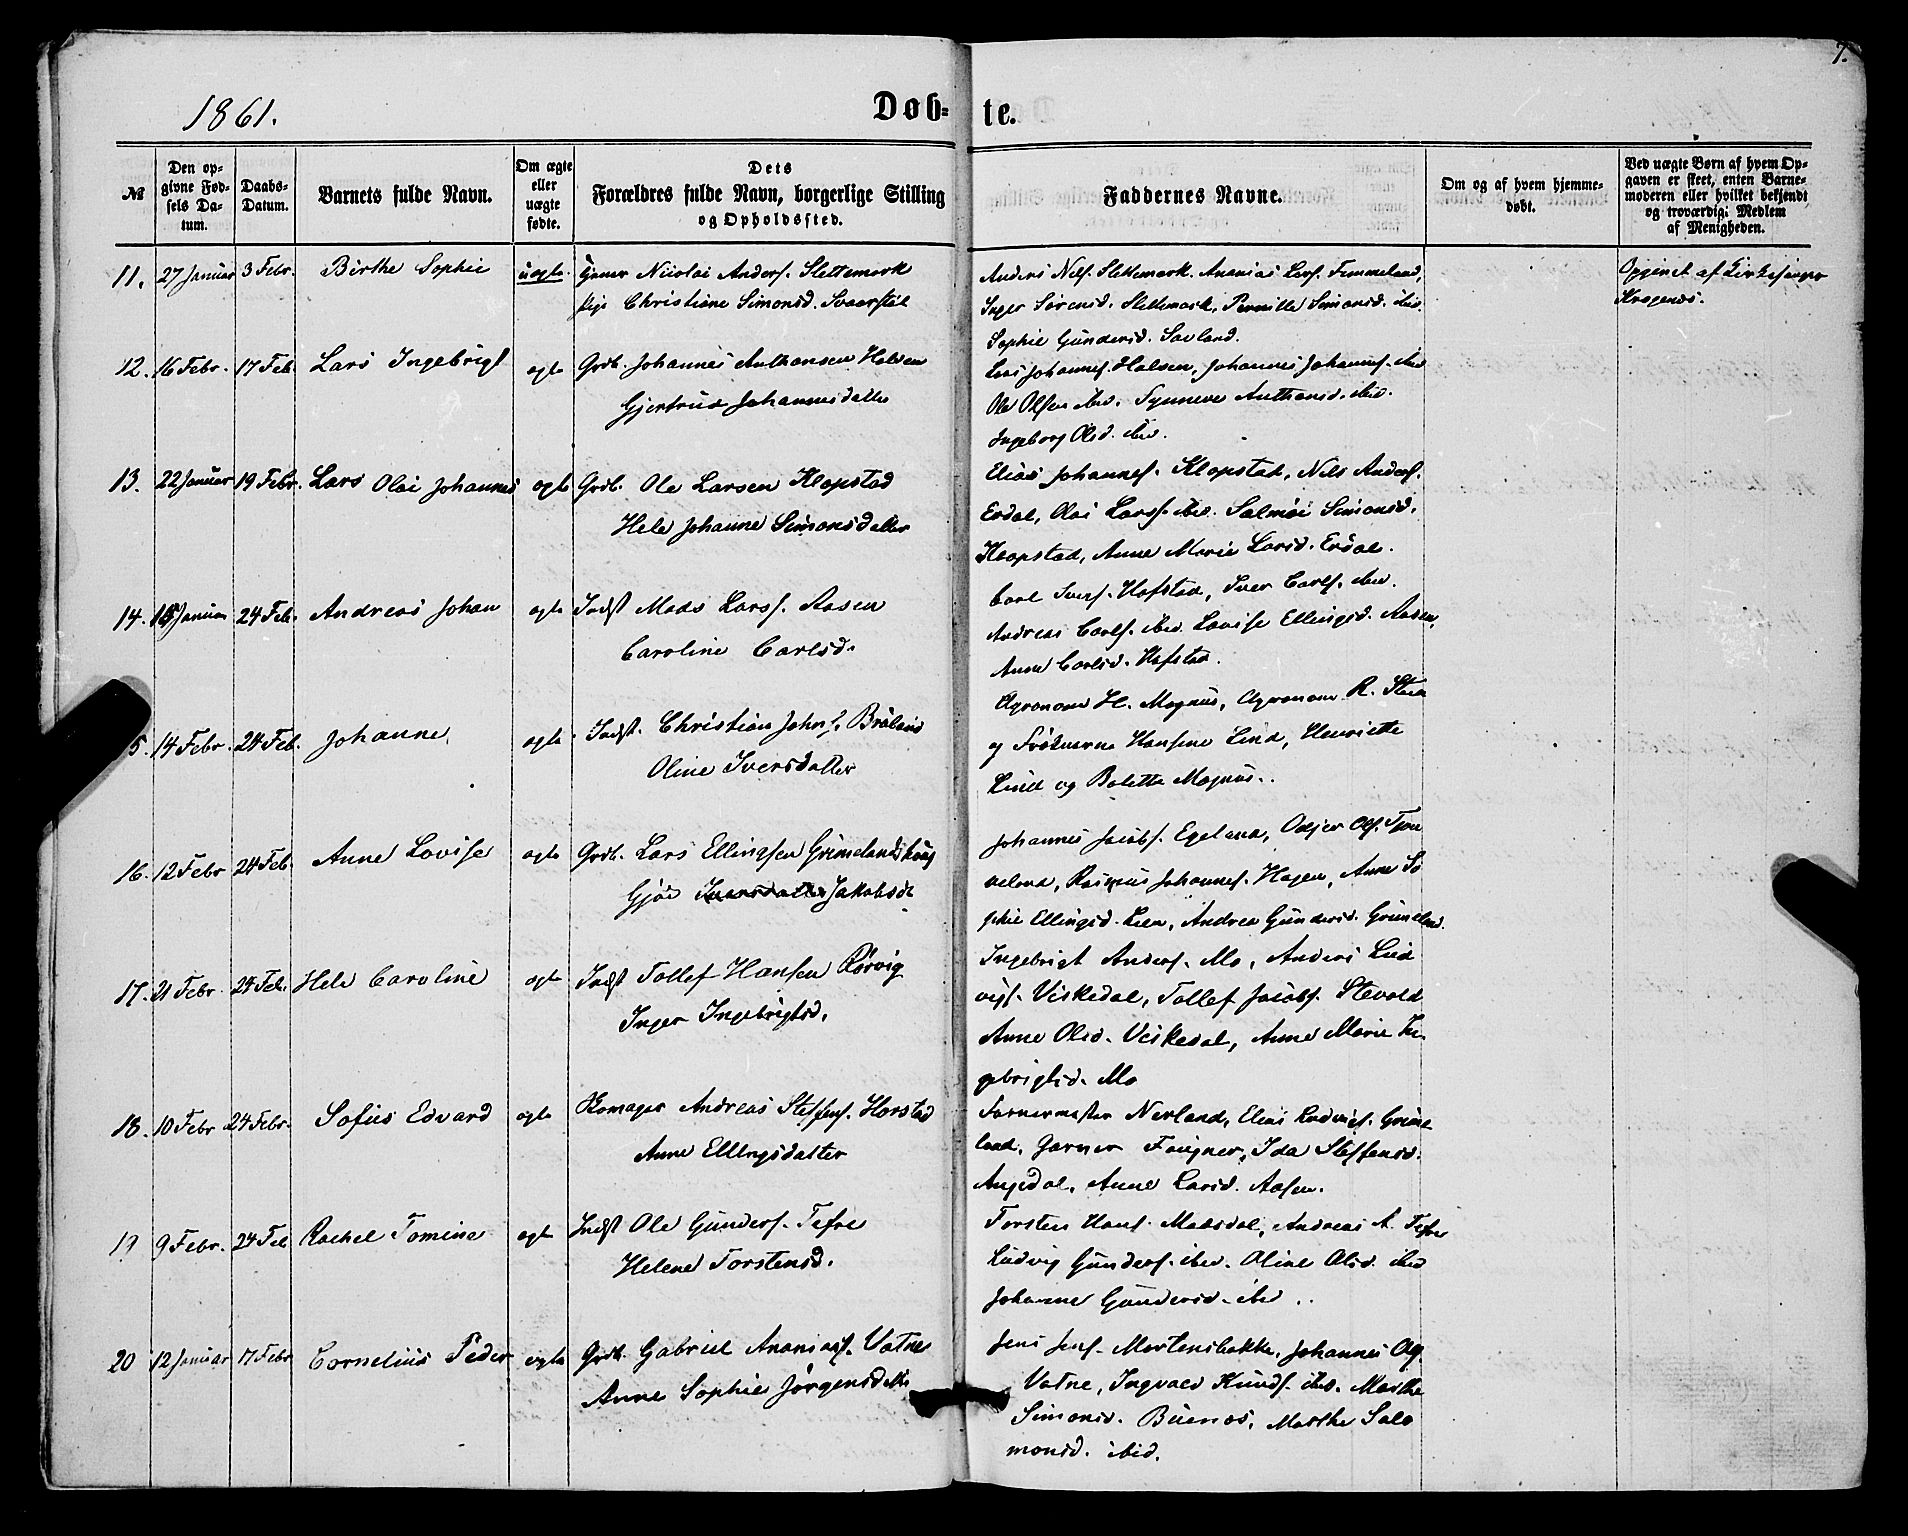 7.
1861.
Døb-
te.
№
Den op-
givne Fød-
sels Da-
tum.
Daabs-
Datum.
Barnets fulde Navn.
Om ægte
eller
uægte
fødte.
Dets
Forældres fulde Navn, borgerlige Stilling
og Opholdssted.
Faddernes Navne.
Om og af hvem hjemme-
døbt.
Ved uægte Børn af hvem Op-
gaven er skeet, enten Barne-
moderen eller hvilket bekjendt
og troværdigt Medlem
af Menigheden.
11. 27 Januar 3 Febr. Birthe Sophie uægte. Nicolai Anders. Slettemark
Pige Christiane Simonsd. Svaarstøl
Anders Nils. Slettemark, Ananias Lars. Timmeland,
Inger Sørensd. Slettemark, Pernille Simonsd. ibid.
Sophie Gundersd. Savland.
Opgivet af Kirkesanger
Kragenæs.
12. 16 Febr. 17 Feb. Lars Ingebrigt ægte Grdb. Johannes Anthonsen Halsen
Gjertrud Johannesdatter
Lars Johannes. Halsen, Johannes Johannes. ibid
Ole Olsen ibid. Synneve Anthonsd. ibid.
Ingeborg Olsd. ibid.
13. 22 Januar 19 Febr. Lars Olai Johannes ægte Grdb. Ole Larsen Klopstad
Hele Johanne Simonsdatter
Elias Johannes. Klopstad, Nils Anders.
Erdal, Olai Lars. ibid. Salmøi Simonsd.
Klopstad, Anne Marie Larsd. Erdal.
14. Januar 24 Feb. Andreas Johan ægte Indst Mads Lars. Aasen
Caroline Carlsd.
Carl Ivers. Hafstad, Iver Carls. ibid.
Andreas Carls. ibid. Lovise Ellingsd. Aasen,
Anne Carlsd. Hafstad.
5. 14 Febr. 24 Feb. Johanne ægte Indst. Christian Johns.
Oline Iversdatter
Agronom H. Magnus, Agronom R. Stein
og Frøknerne Hansine Lind, Henriette
Lind og Bolette Magnus.
16. 12 Febr 24 Feb. Anne Lovise ægte Grdb. Lars Ellingsen Grimelandshaug
Gjøri Iversdatter Jakobsd.
Johannes Jacobs. Egeland, Odjer Ols. Tjøn
neland, Rasmus Johannes. Hagen, Anne So
phie Ellingsd. Lien, Andrea Gundersd. Grimeland.
17. 21 Febr. 24 Feb. Hele Caroline ægte Indst Tollef Hansen Rørvig
Inger Ingebrigtsd.
Ingebrigt Anders. Mo, Anders Lud
vigs. Viskedal, Tollef Jacobs. Stevold
Anne Olsd. Viskedal, Anne Marie In-
gebrigtsd. Mo
18. 10 Febr 24 Febr. Sofius Edvard ægte Skomager Andreas Steffens. Horstad
Anne Ellingsdatter
Farvermester Nerland, Elias Ludvigs. Grime
land, Garver Faugner, Ida Steffensd.
Angedal, Anne Larsd. Aasen.
19 9 Febr. 24 Feb Rachel Tomine ægte Indst Ole Gunders. Tefre
Helene Torstensd.
Torsten Hans. Madsdal, Andreas A. Tefre
Ludvig Gunders. ibid. Oline Olsd. ibid
Johanne Gundersd. ibid.
20 12 Januar 17 Febr Cornelius Peder ægte Grdb. Gabriel Ananias. Vatne
Anne Sophie Jørgensdatter
Jens Jens. Mortensbakke, Johannes Og.
Vatne, Ingvald Knuds. ibid. Marthe
Simonsd. Buenæs, Marthe Salo
monsd. ibid.